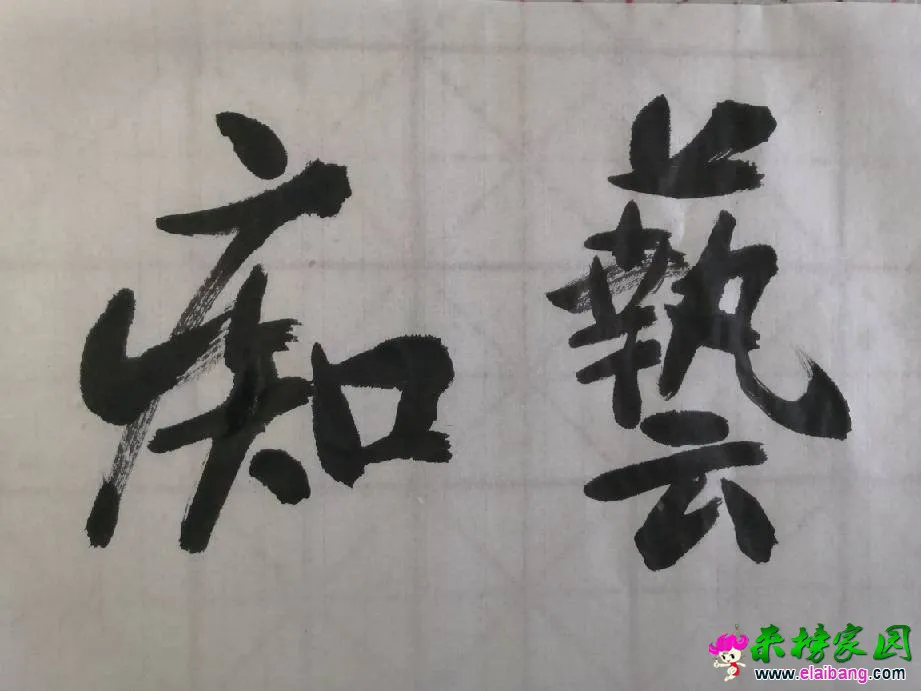 藝痴
来榜家园
www.elaibang.com